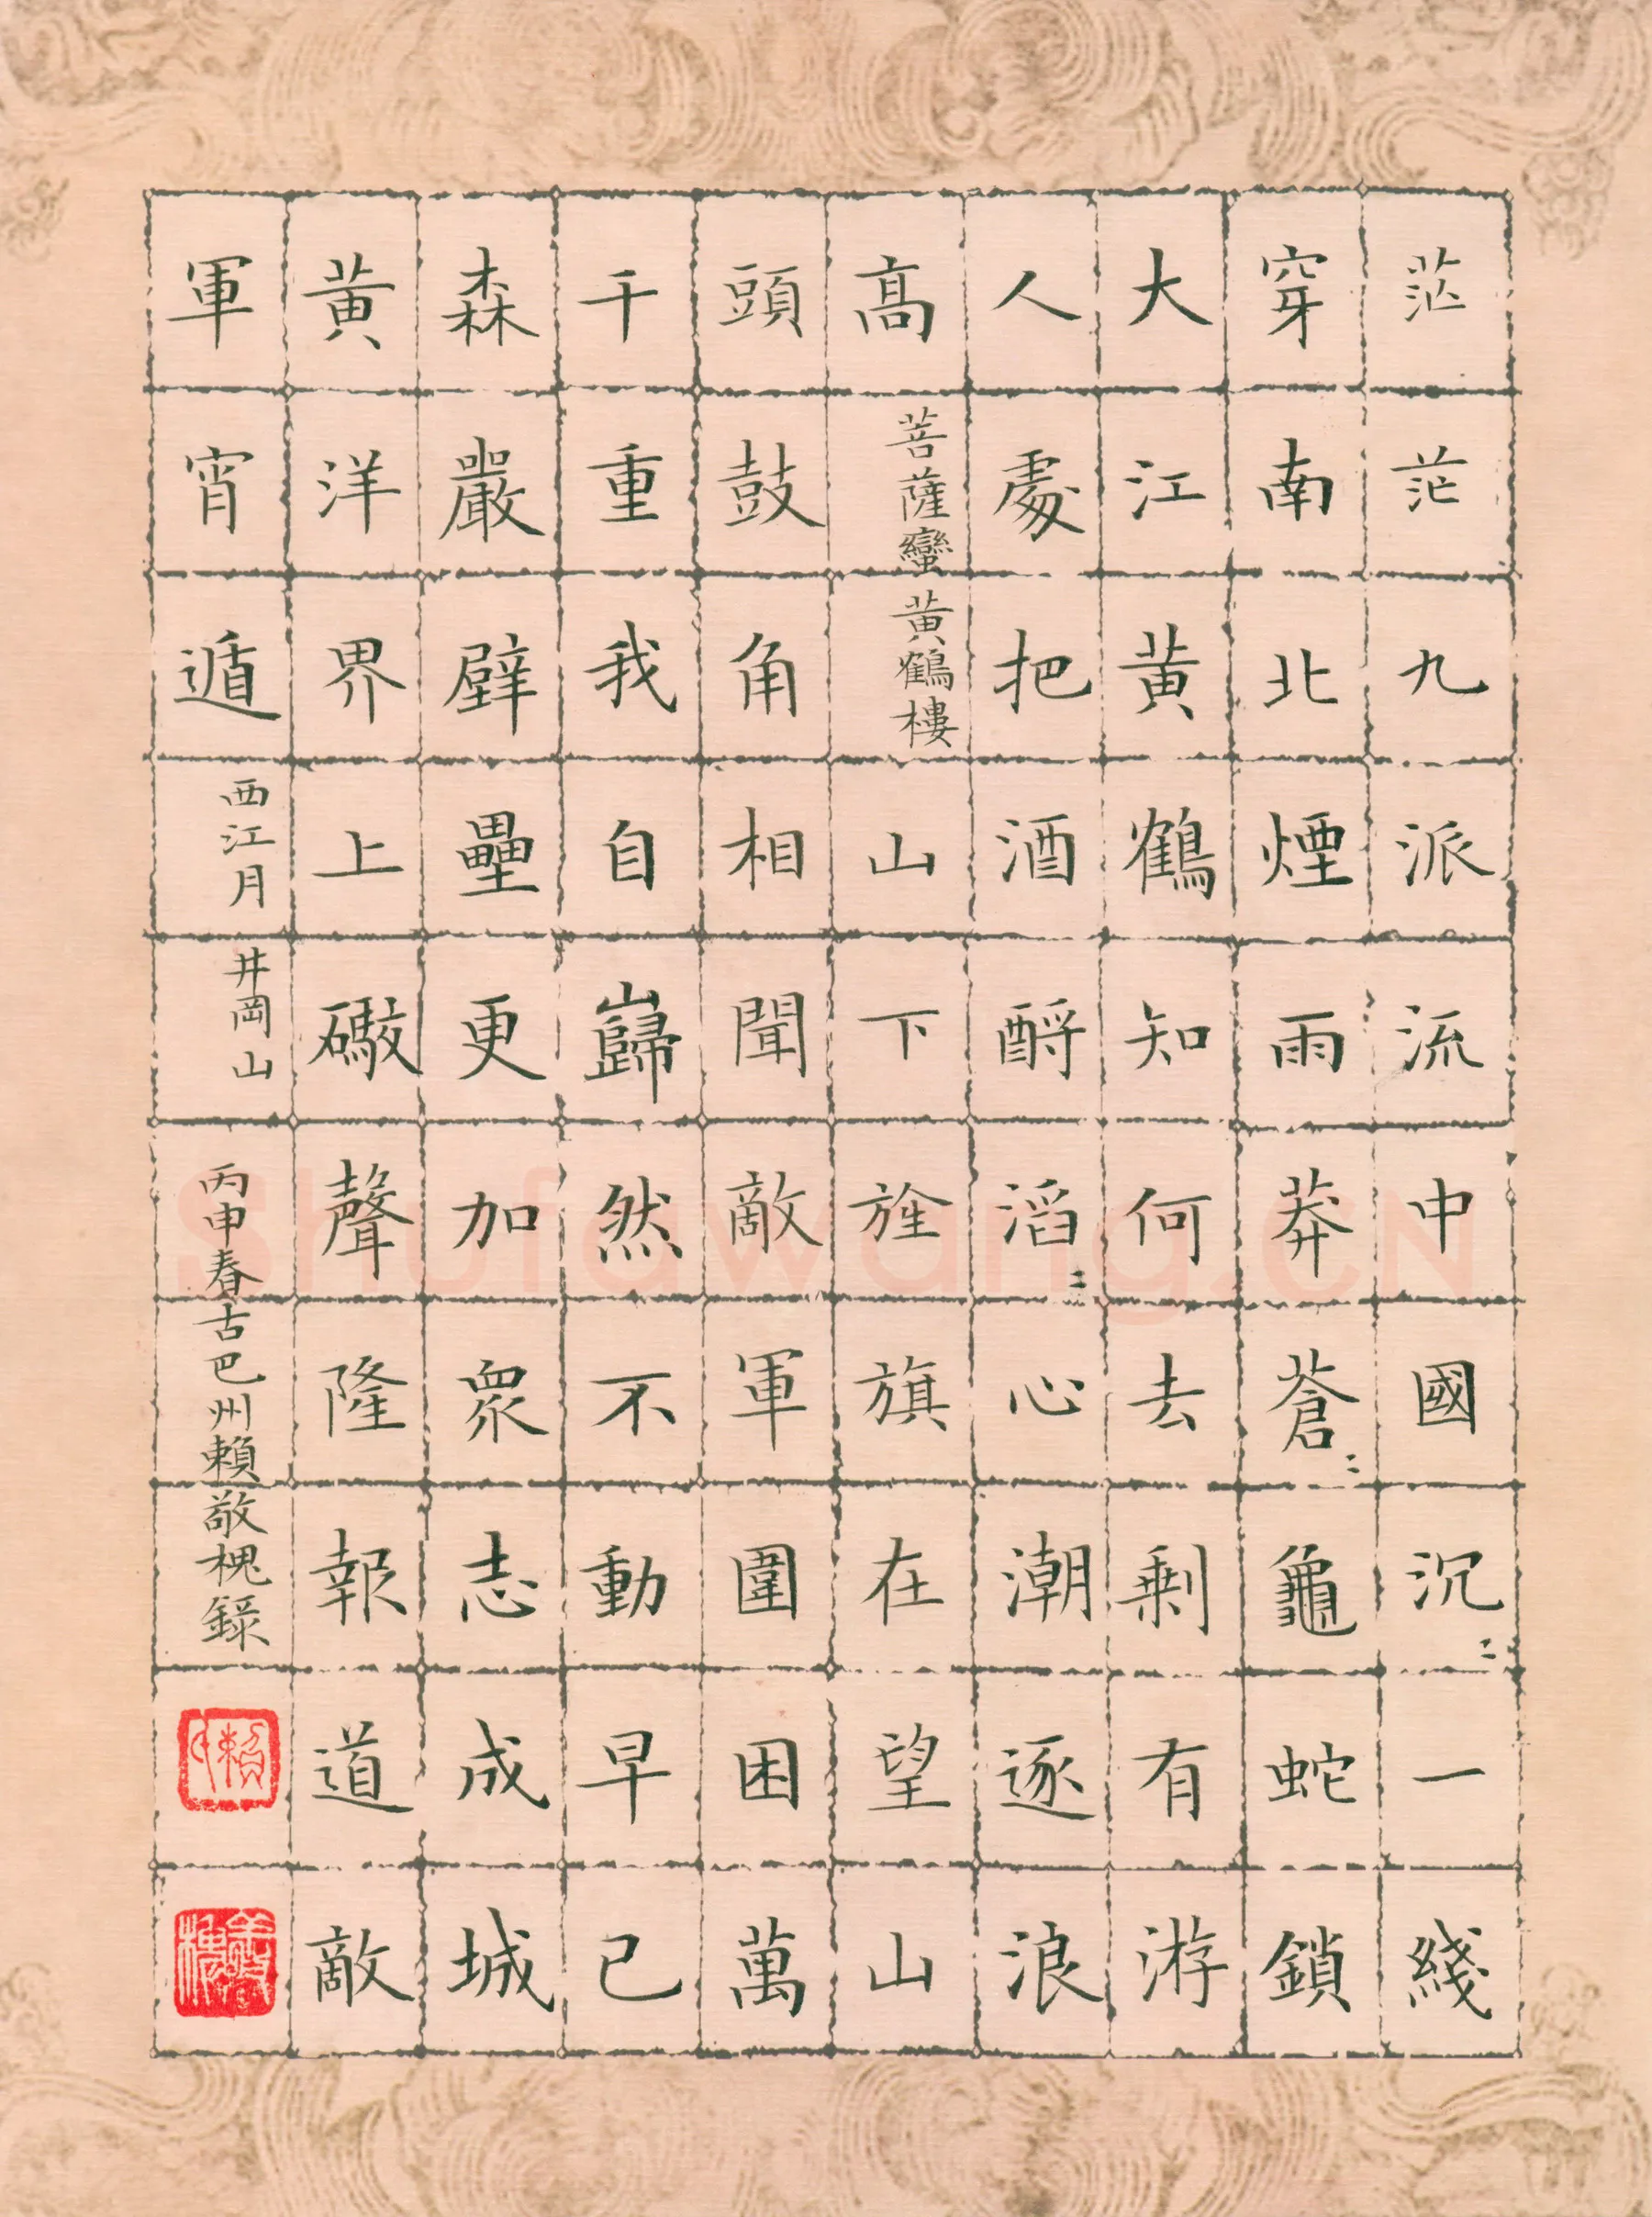 茫茫九派流中國沉〻一綫
穿南北煙雨莽蒼〻龜蛇鎖
大江黃鶴知何去剩有游
人處把酒酹滔〻心潮逐浪
高菩薩蠻黃鶴樓山下旌旗在望山
頭鼓角相聞敵軍圍困萬
千重我自巋然不動早已
森嚴壁壘更加眾志成城
黃洋界上礮聲隆報道敵
軍宵遁西江月井岡山
丙申春古巴州賴敬槐錄
shufawang.cn